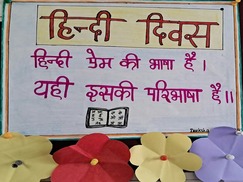 हिन्दी दिवस
हिन्दी प्रेम की भाषा है ।
यही इसकी परिभाषा है ।।